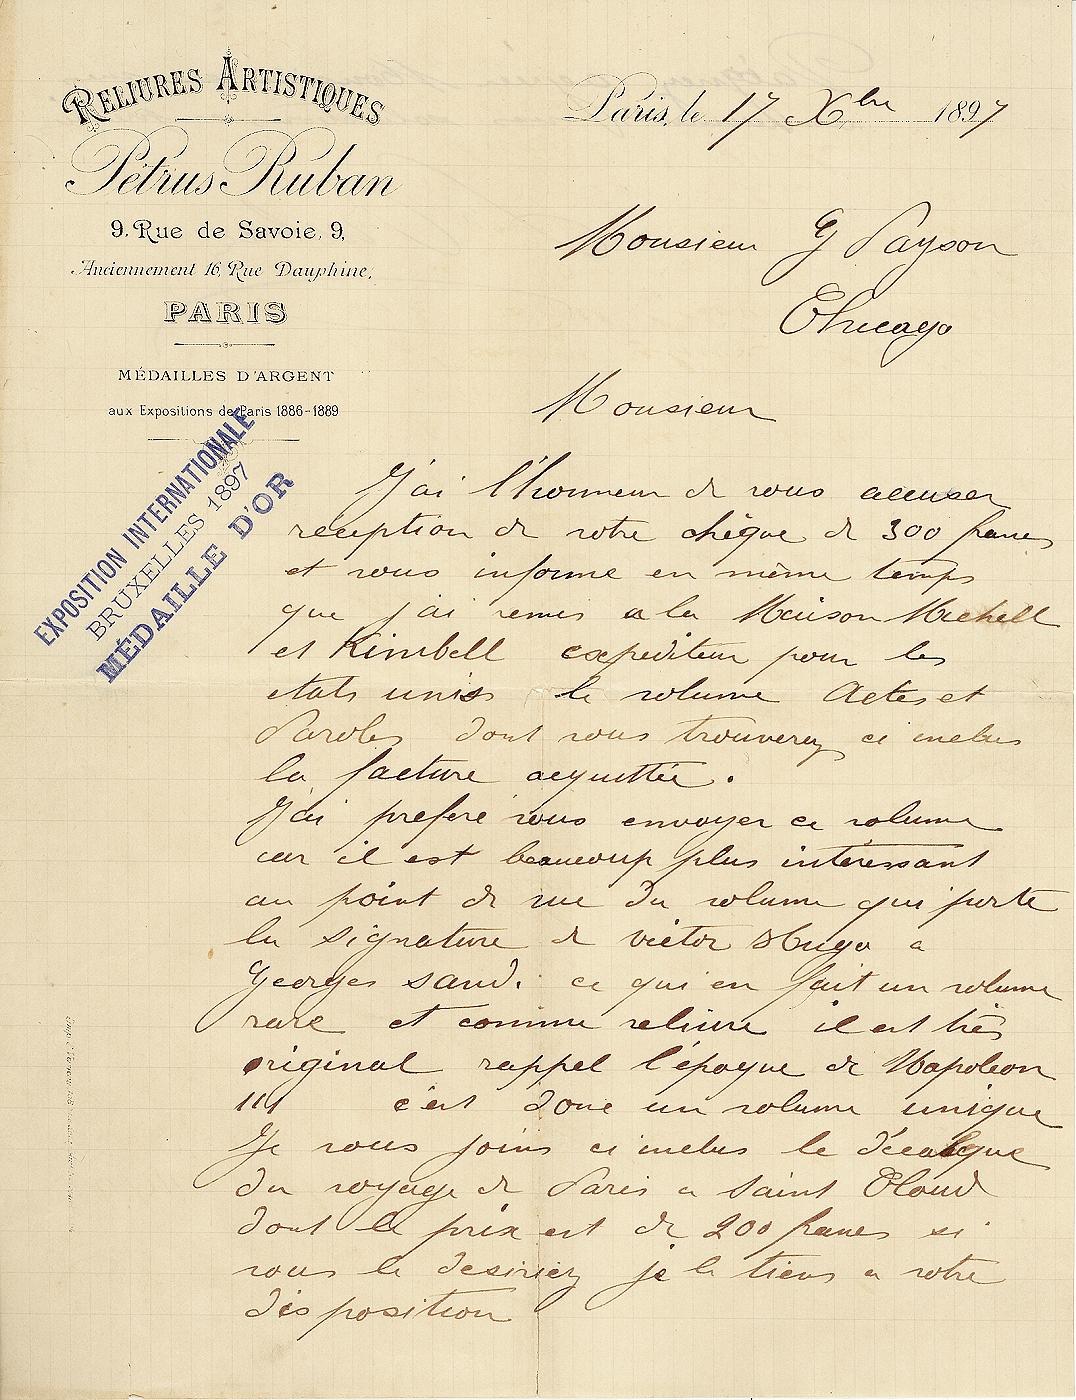 RELIURES ARTISTIQUES
Pétrus Ruban
9, Rue de Savoie, 9,
Anciennement 16, Rue Dauphine,
PARIS
MÉDAILLES D'ARGENT
aux Expositions de Paris 1886-1889
EXPOSITION INTERNATIONALE
BRUXELLES 1897
MÉDAILLE D'OR
Paris, le 17 Xbre 1897
Monsieur G Payson
Chicago
Monsieur
J'ai l'honneur de vous accuser
reception de votre chèque de 300 francs
et vous informe en même temps
que j'ai remis a la Maison Mechell
et Kimbell expediteur pour les
etats unis le volume Actes et
Paroles dont vous trouverez ci inclus
la facture acquittée.
J'ai preferé vous envoyer ce volume
car il est beaucoup plus intéressant
au point de vue du volume qui porte
la signature de victor Hugo a
Georges Sand. ce qui en fait un volume
rare et comme reliure il est très
original rappel l'époque de Napoleon
III c'est donc un volume unique
Je vous joins ci inclus le décalque
du voyage de Paris a Saint Cloud
dont le prix est de 200 francs si
vous le desiriez je le tiens a votre
disposition